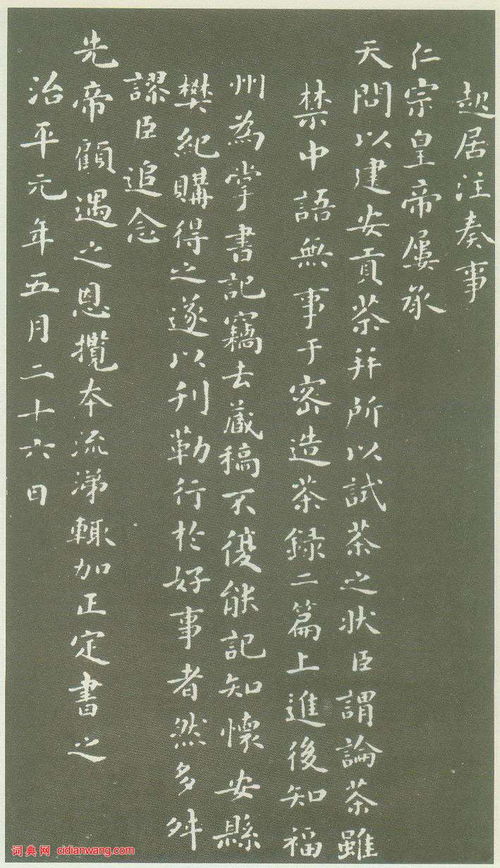 起居注奏事
仁宗皇帝屢承
天問以建安貢茶并所以試茶之狀臣謂論茶雖
禁中語無事于密造茶録二篇上進後知福
州為掌書記竊去蔵稿不復能記知懷安縣
樊紀購得之遂以刋勒行於好事者然多舛
謬臣追念
先帝顧遇之恩攬本流涕輒加正定書之
治平元年五月二十六日
词典网 cidianwang.com